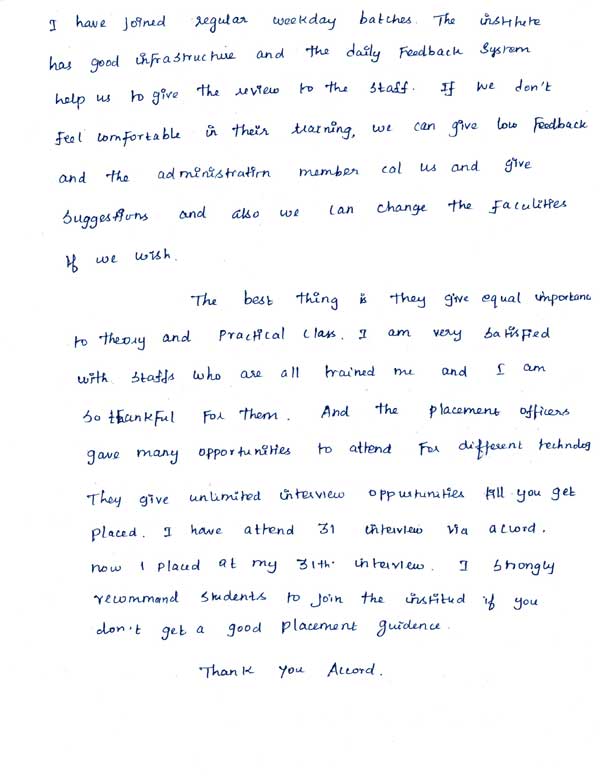 I have joined regular weekday batches. The institute
has good infrastructure and the daily Feedback System
help us to give the review to the staff. If we don't
feel comfortable in their training, we can give low Feedback
and the administration member cal us and give
Suggestions and also we can change the Faculities
If we wish.
The best thing is they give equal importanc
to theory and Practical Class. I am very Satisfied
with Staffs who are all trained me and I am
So thankful For them. And the placement officers
gave many opportunities to attend For different technolog
They give unlimited interview oppurtunities till you get
Placed. I have attend 31 interview via accord.
now I Placed at my 31th. interview. I Strongly
recommand Students to Join the institud if you
don't get a good Placement guidence.
Thank You Accord.